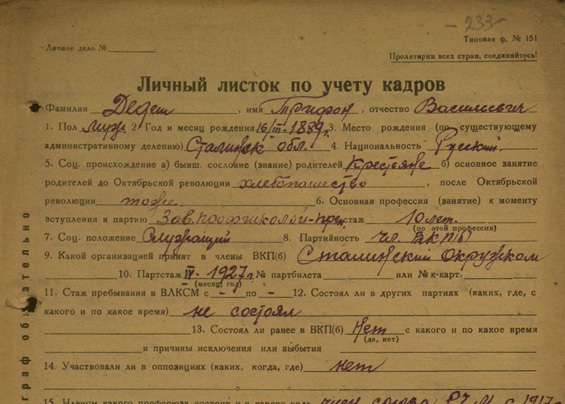 -233-
Личное дело №
Типовая ф. № 151
Пролетарии всех стран, соединяйтесь!
Личный листок по учету кадров
Фамилия Дедеш, имя Трифон, отчество Василиевич
1. Пол муж 2. Год и месяц рождения 16/III-1889г. 3. Место рождения (по существующему
административному делению) Сталинск обл. 4. Национальность Русский
5. Соц. происхождение а) бывш. сословие (звание) родителей Крестьяне б) основное занятие
родителей до Октябрьской революции хлебопашество, после Октябрьской
революции тоже. 6. Основная профессия (занятие) к моменту
вступления в партию Зав. стаж 10 лет.
(по этой профессии)
7. Соц. положение Служащий 8. Партийность чл. ВКП(б)
9. Какой организацией принят в члены ВКП(б) Сталинский Окружком
10. Партстаж IV-1927г № партбилета или № к-карт.
(месяц, год)
11. Стаж пребывания в ВЛКСМ с - по - 12. Состоял ли в других партиях (каких, где, с
какого и по какое время) не состоял
13. Состоял ли ранее в ВКП(б) Нет с какого и по какое время
(да, нет)
и причины исключения или выбытия
14. Участвовали ли в оппозициях (каких, когда, где) нет
15. Членом какого профсоюза состоит и с какого года член союза с 1917
граф обязательно